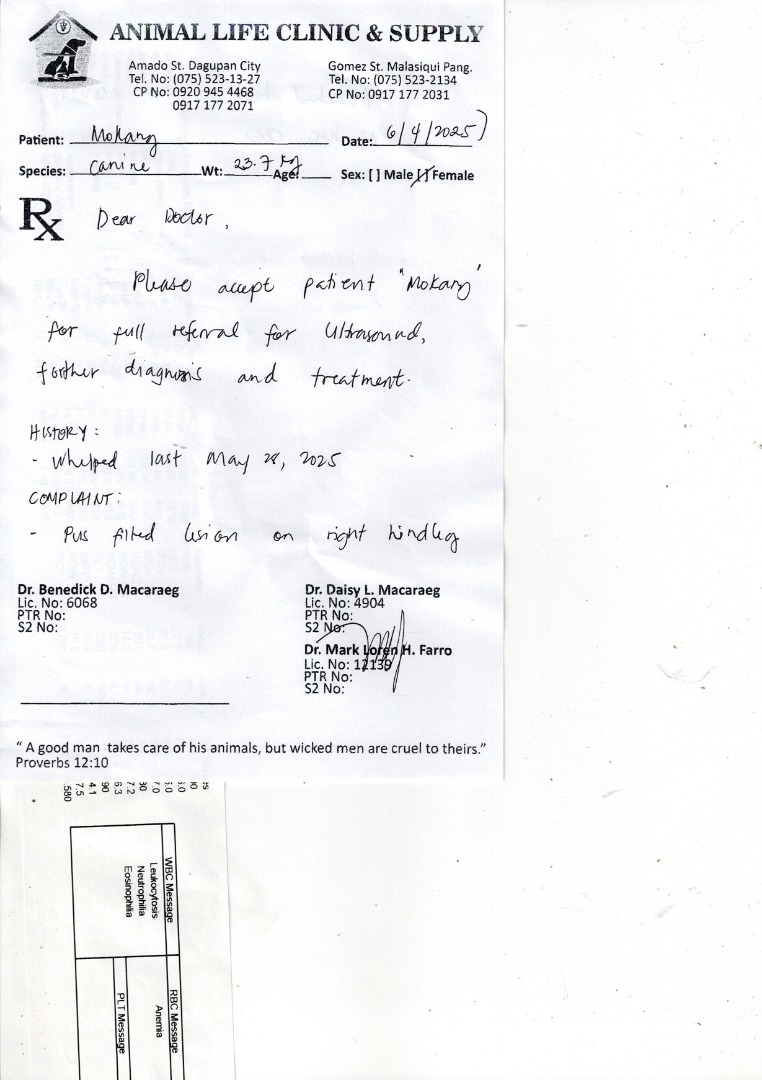 ANIMAL LIFE CLINIC & SUPPLY
Amado St. Dagupan City
Tel. No: (075) 523-13-27
CP No: 0920 945 4468
0917 177 2071
Gomez St. Malasiqui Pang.
Tel. No: (075) 523-2134
CP No: 0917 177 2031
Patient: Mokang Date: 6/4/2025
Species: Canine Wt: 23.7 kg Age: Sex: [ ] Male [/] Female
Rx Dear Doctor,
Please accept patient "Mokang"
for full referral for Ultrasound,
further diagnosis and treatment.
HISTORY:
- Whelped last May 28, 2025
COMPLAINT:
- Pus filled lesion on right hindleg
Dr. Benedick D. Macaraeg
Lic. No: 6068
PTR No:
S2 No:
Dr. Daisy L. Macaraeg
Lic. No: 4904
PTR No:
S2 No:
Dr. Mark Loren H. Farro
Lic. No: 12139
PTR No:
S2 No:
" A good man takes care of his animals, but wicked men are cruel to theirs."
Proverbs 12:10
90
7.2
6.3
90
4.1
7.5
.580
WBC Message
Leukocytosis
Neutrophilia
Eosinophilia
RBC Message
Anemia
PLT Message